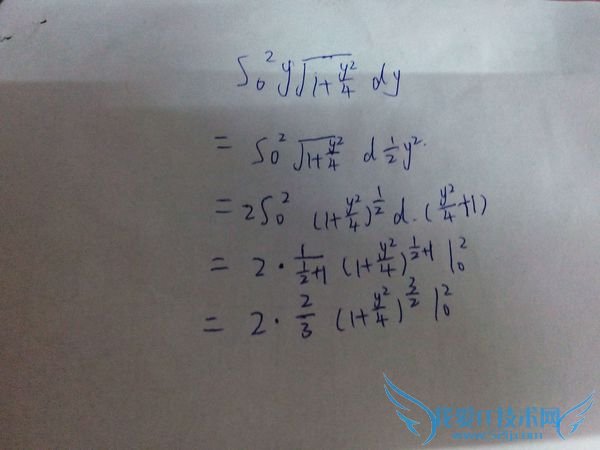 ∫₀² y√(1+y²/4) dy
= ∫₀² √(1+y²/4) d ½y²
= 2∫₀² (1+y²/4)^(1/2) d.(y²/4+1)
= 2·1/(½+1) (1+y²/4)^(½+1) |₀²
= 2·2/3 (1+y²/4)^(3/2) |₀²
技术网